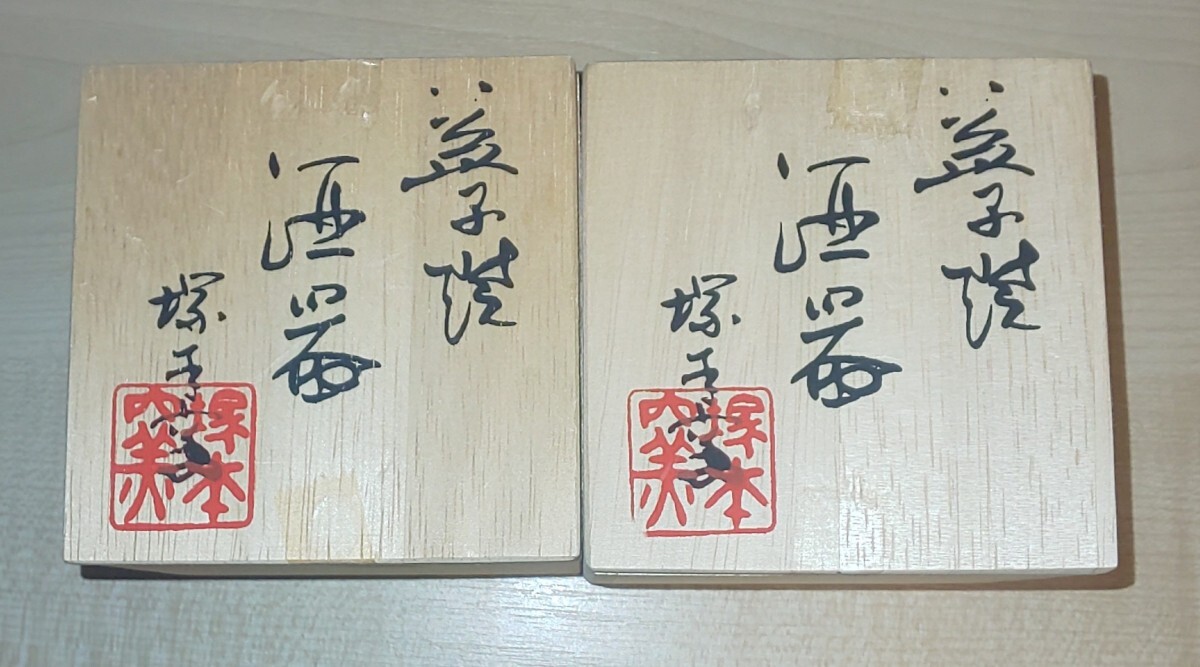 益子焼
酒器
塚本
塚本
益子焼
酒器
塚本
塚本